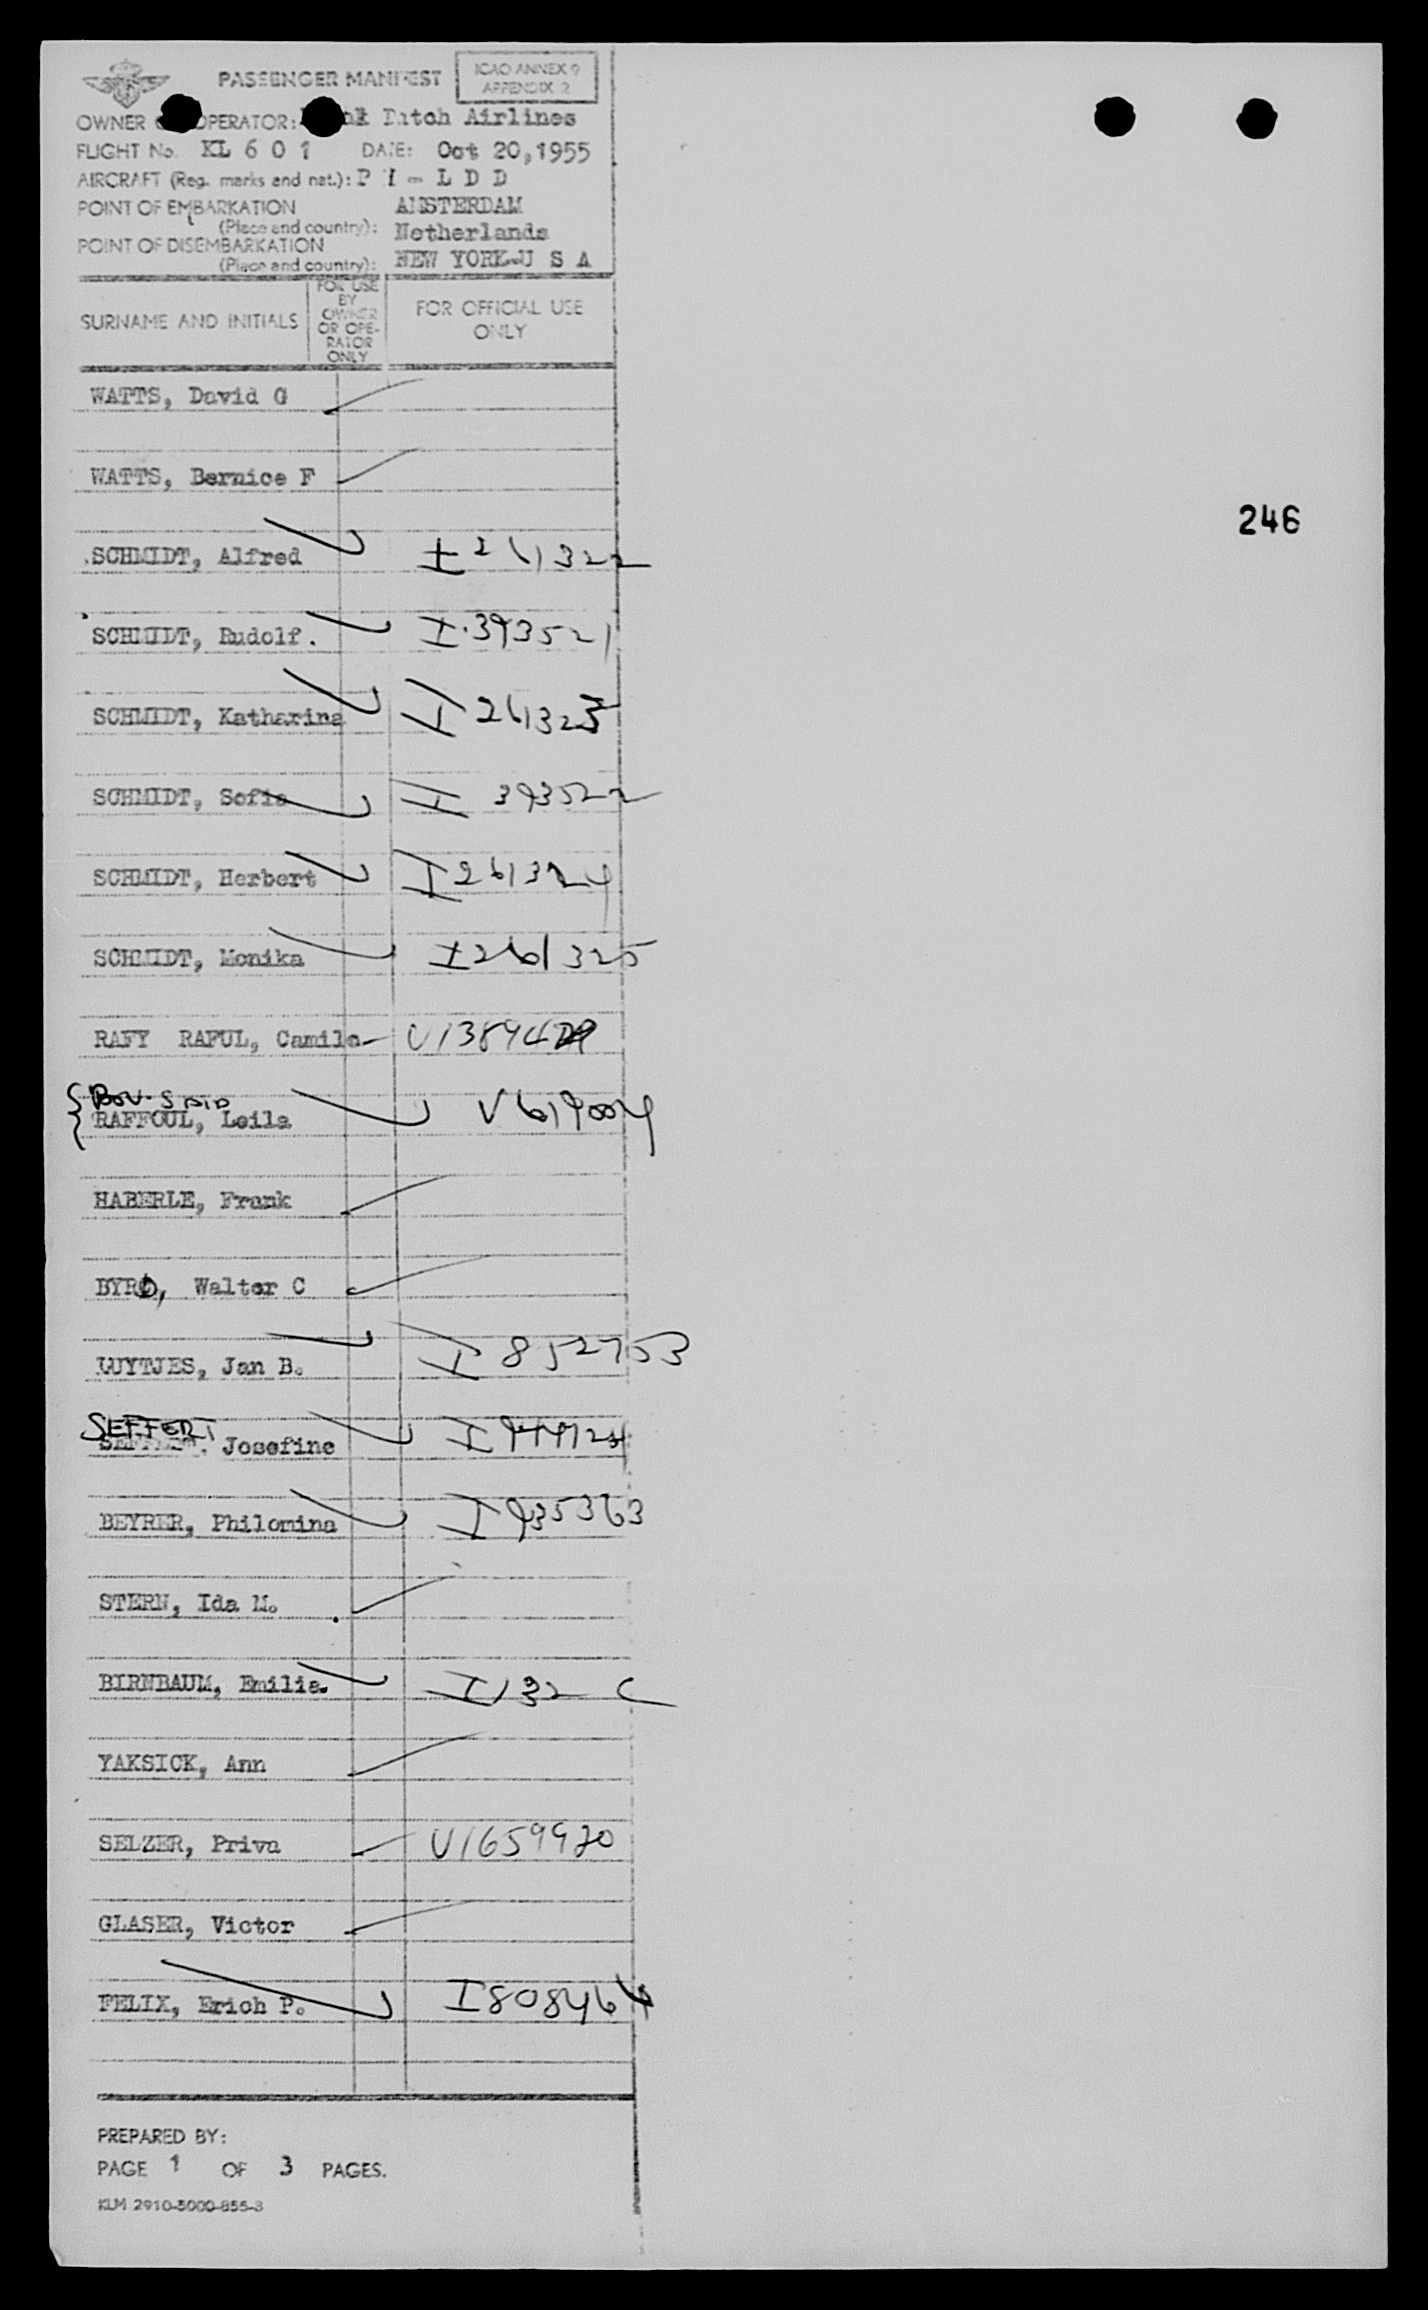 PASSENGER MANIFEST
ICAO ANNEX 9
APPENDIX 2
OWNER OPERATOR: Dutch Airlines
FLIGHT No. KL 6 0 1 DATE: Oct 20,1955
AIRCRAFT (Reg. marks and nat.): P H - L D D
POINT OF EMBARKATION AMSTERDAM
(Place and country): Netherlands
POINT OF DISEMBARKATION
(Place and country): NEW YORK-U S A
SURNAME AND INITIALS
FOR USE
BY
OWNER
OR OPE-
RATOR
ONLY
FOR OFFICIAL USE
ONLY
WATTS, David G
WATTS, Bernice F
246
SCHMIDT, Alfred I 261322
SCHMIDT, Rudolf. I 393521
SCHMIDT, Katharina I 261323
SCHMIDT, Sofia I 393522
SCHMIDT, Herbert I 261324
SCHMIDT, Monika I 261325
RAFY RAFUL, Camila
BOU-SAID
RAFFOUL, Leila V 619004
HABERLE, Frank
BYRD, Walter C
LUYTJES, Jan B. I 852753
SEFFERT
Josefine
BEYRER, Philomina I 935363
STERN, Ida M.
BIRNBAUM, Emilia. I 132 C
YAKSICK, Ann
SELZER, Priva V1659920
GLASER, Victor
FELIX, Erich P. I808464
PREPARED BY:
PAGE 1 OF 3 PAGES.
KLM 2910-5000-855-3